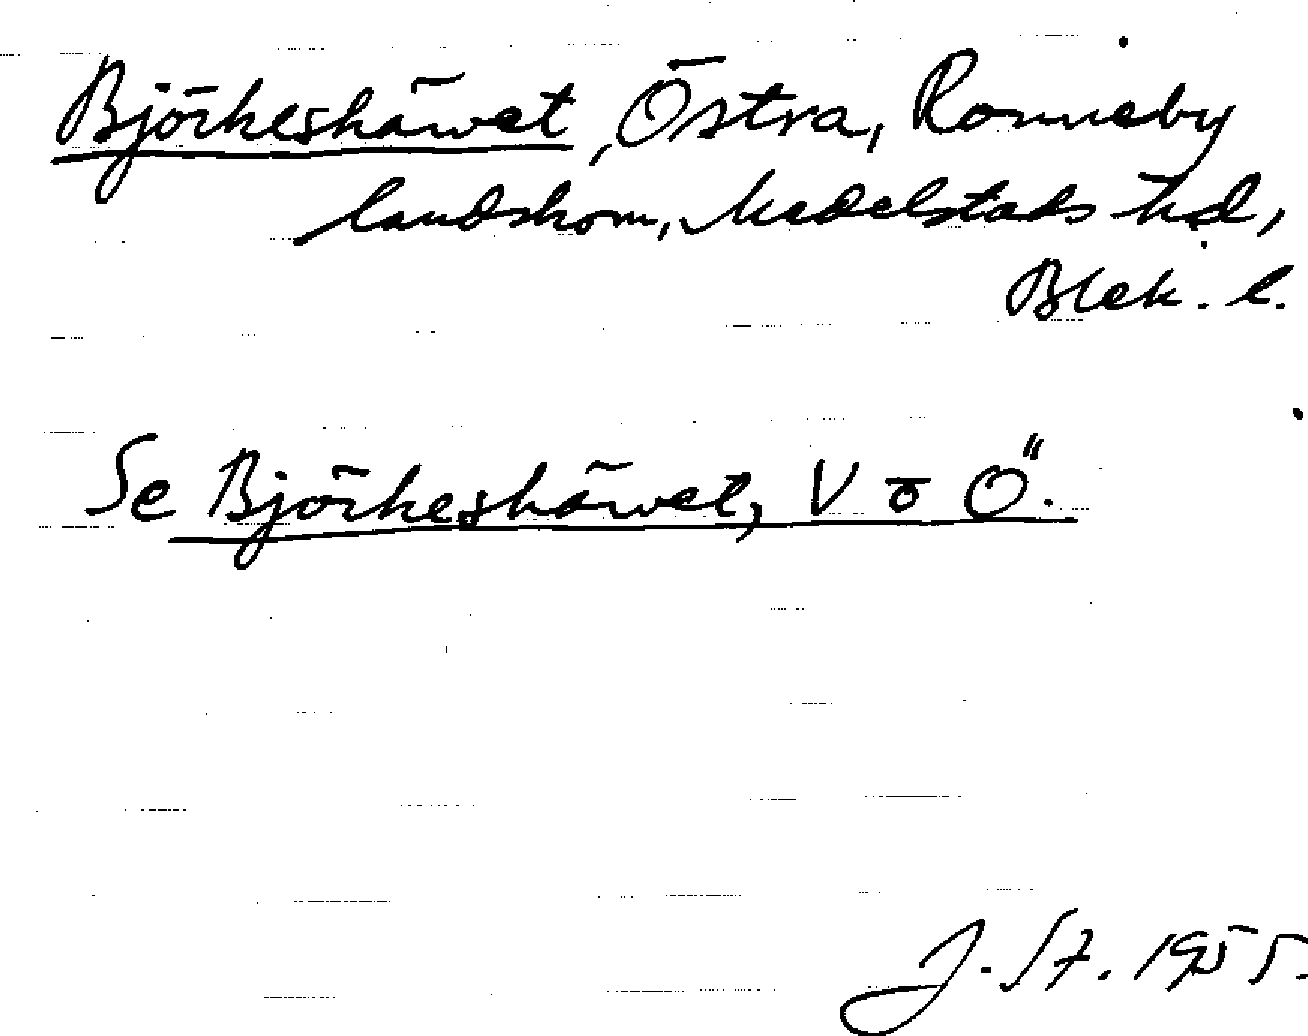 Björkeskärvet, Östra, Ronneby
landskom, Medelstads hd,
Blek. l.
Se Björkeskärvet, V o Ö.
J. S7. 1955.